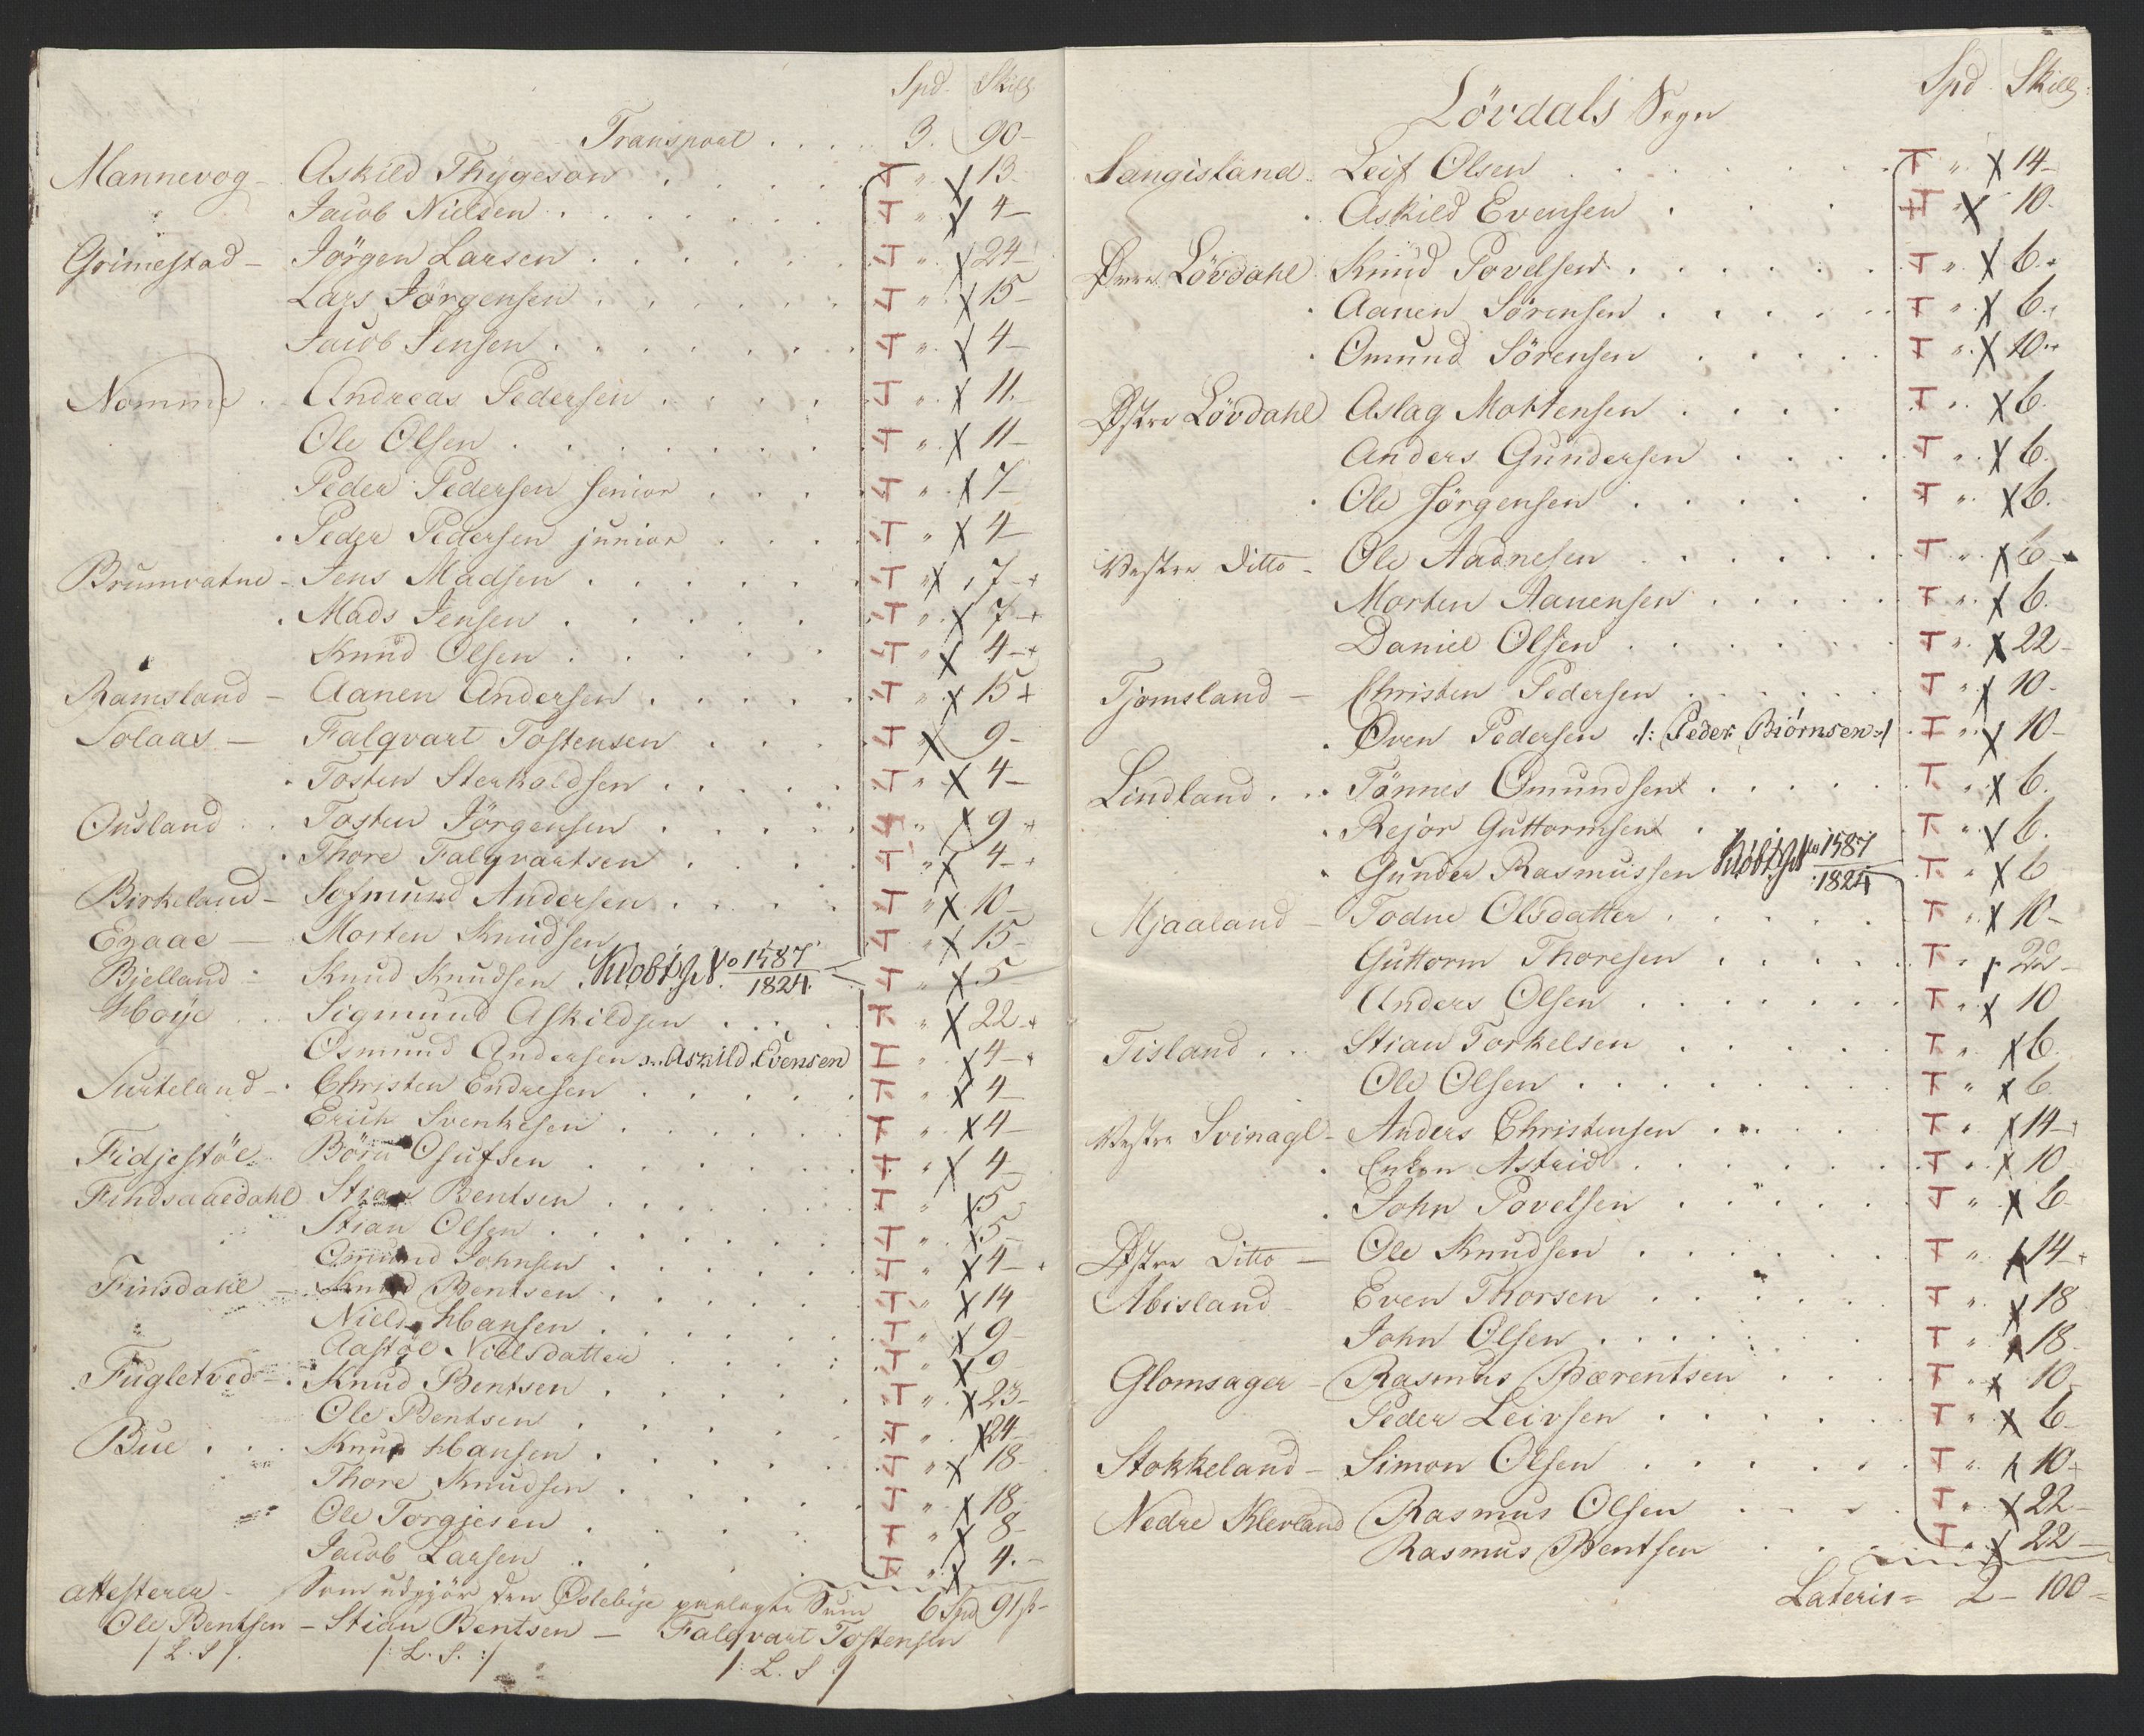 Spd. Skill
Transport . . . . 3. 90-
Mannevog - Askild Thygeson . . . . T " X 13-
Jacob Nielsen . . . . . . . T " X 4-
Grimestad - Jörgen Larsen . . . . . . T " X 24-
Lars Jörgensen . . . . . . T " X 15-
Jacob Jensen . . . . . . . T " X 4-
Nomme . Andreas Pedersen . . . . T " X 11.
Ole Olsen . . . . . . . T " X 11-
Peder Pedersen senior . . . . T " X 7-
Peder Pedersen junior . . . . T " X 4-
Brumvatne - Jens Madsen . . . . . T " X 7-+
Mads Jensen . . . . . . T " X 7-+
Knud Olsen . . . . . . T " X 4-+
Ramsland - Aanen Andersen . . . . . T " X 15+
Solaas - Falqvart Tostensen . . . . T " X 9-
Tosten Sterkoldsen . . . . . T " X 4-
Ousland . . Tosten Jörgensen . . . . . T " X 9+
Thore Falqvartsen . . . . T " X 4-+
Birkeland - Sofmund Andersen . . . . T " X 10-
Egaae - Morten Knudsen T " X 15-
Bjelland - Knud Knudsen . Kiøbt, J No 1587/1824. T " X 5
Høye . . Sigmund Askildsen . . . . T " X 22+
Osmund Andersen Askild Evensen T " X 4-+
Surteland - Christen Endresen . . . . . T " X 4
Erich Svenkesen . . . . . T " X 4-
Fidjestöl - Börn Osufsen . . . . . . T " X 4
Findsaaedahl Stian Bentsen . . . . . . T " X 5
Stian Olsen . . . . . . . T " X 5-
Omund Johnsen . . . . . . T " X 4-
Finsdahl - Knud Bentsen . . . . . . T " X 14
Niels Hansen . . . . . . T " X 9-
Aastöl Nielsdatter . . . . : T " X 9
Fugletved - Knud Bentsen . . . . . T " X 23-
Ole Bentsen . . . . . . T " X 24-
Bue . . . Knud Hansen . . . . . T " X 18-
Thore Knudsen . . . . . T " X 18-
Ole Torgjesen . . . . . T " X 8-
Jacob Larsen . . . . . T " X 4.-
Attesterer - Som udgjör den Øslebye paalagte Sum 6 Spd 91 s-
Ole Bentsen - Stian Bentsen - Falqvart Tostensen
/ L. S /. /: L. S. :/ /: L. S :/
Spd Skill
Lövdals Sogn
Langisland - Leif Olsen . . . . . . . T " X 14-
Askild Evensen . . . . T " X 10-
Øvre Lövdahl Knud Povelsen . . . . . . T " X 6.+
Aanen Sörensen . . . . . T " X 6.+
Omund Sörensen . . . . T " X 10-+
Østre Lövdahl Aslag Mortensen . . . . T " X 6.
Anders Gundersen . . . . T " X 6.
Ole Jörgensen . . . . . T " X 6.
Vestre Ditto - Ole Aadnesen . . . . . T " X 6-
Morten Aanensen . . . . . T " X 6.
Daniel Olsen . . . . . . T " X 22-
Tjomsland - Christen Pedersen . . . . . . T " X 10-
Oven Pedersen /: Peder Biörnsen :/ T " X 10-
Lindland . . . Tönnes Omundsen . . . . . T " X 6.
Rejor Guttormsen . T " X 6.
Gunder Rasmussen Kiöbt, J No 1587/1824 T " X 6
Mjaaland - Todne Olsdatter . . . . . T " X 10-
Guttorm Thoresen . . . . . T " X 22-
Anders Olsen . . . . . . T " X 10
Tisland . . . Stian Torkelsen . . . . . T " X 6.
Ole Olsen . . . . . . . T " X 6.
Vestre Svinagl - Anders Christensen . . . . T " X 14-+
Enken Astrid . . . . . . T " X 10
John Povelsen . . . . . T " X 6
Østre Ditto - Ole Knudsen . . . . . . T " X 14-+
Abisland - Even Thorsen . . . . . T " X 18
John Olsen . . . . . . T " X 18-
Glomsager - Rasmus Bærentsen . . . . T " X 10-
Peder Leivsen . . . . . T " X 6-
Stokkeland - Simon Olsen . . . . . T " X 10+
Nedre Klevland Rasmus Olsen . . . . T " X 22-
Rasmus Bentsen . . . T " X 22-
Lateris = 2 - 100 =